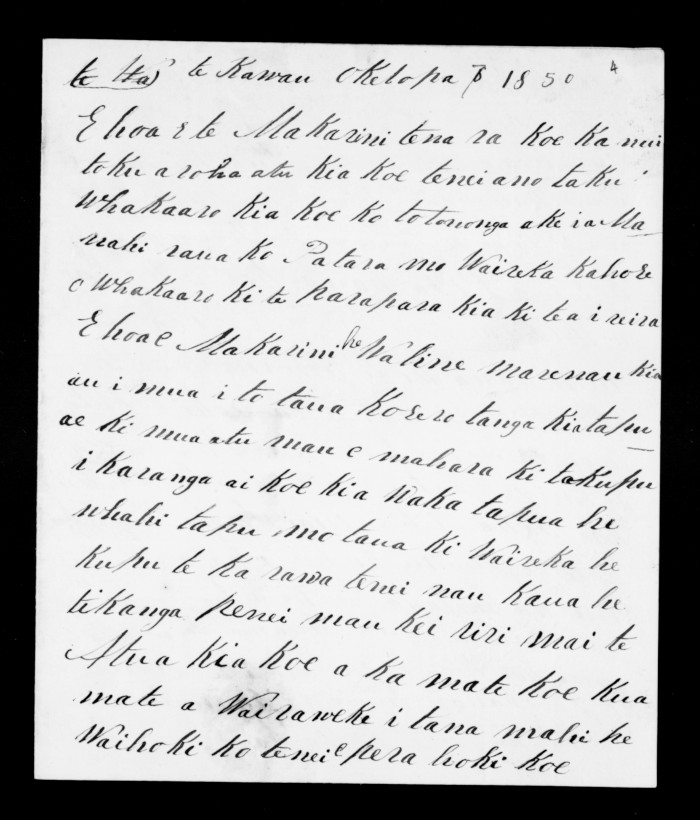 te Kawau Oketopa 8 1850 4
E hoa E te Makarini tena ra Koe Ka nui
toKu aroha atu Kia Koe tenei ano taKu
WhaKaaro Kia Koe Ko to tononga aKe i a Ma
nahi raua Ko Patara mo WaireKa Kahore
e WhaKaaro Ki te parapara Kia Ki te a i reira
E hoa e MaKarini he Waline marenau Kia
au i mua i to taua Korero tanga Kia tapu
ae Ki mua atu mau e mahara Ki taKupu
i Karanga ai Koe Kia WaKa tapua he
whahi tapu mo taua Ki WaireKa he
Kupu te Ka rawa tenei nau Kaua he
tiKanga penei mau Kei riri mai te
Atua Kia Koe a Ka mate Koe Kua
mate a WairaweKe i tana mahi he
WaihoKi Ko tenei e pera hoKi Koe